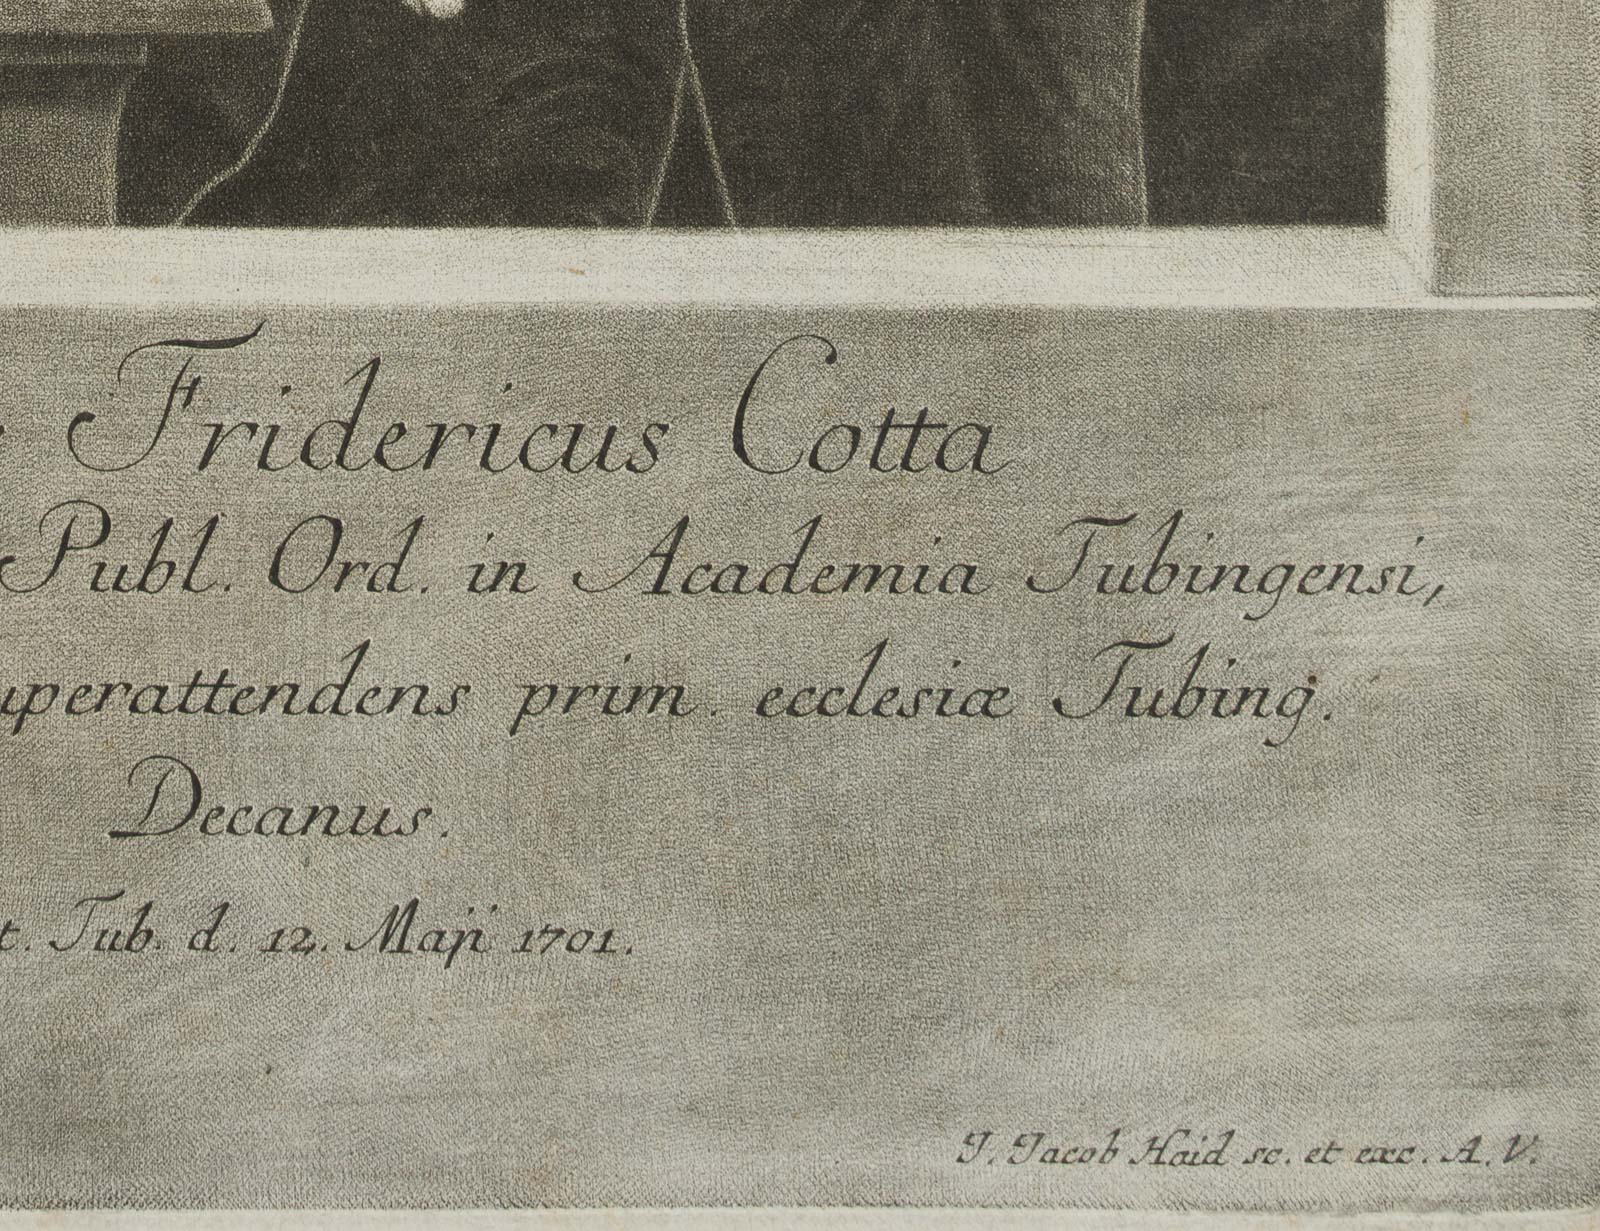 Fridericus Cotta
Publ. Ord. in Academia Tubingensi,
uperattendens prim. ecclesiæ Tubing.
Decanus.
t. Tub. d. 12. Maji 1701.
J. Jacob Haid sc. et exc. A. V.